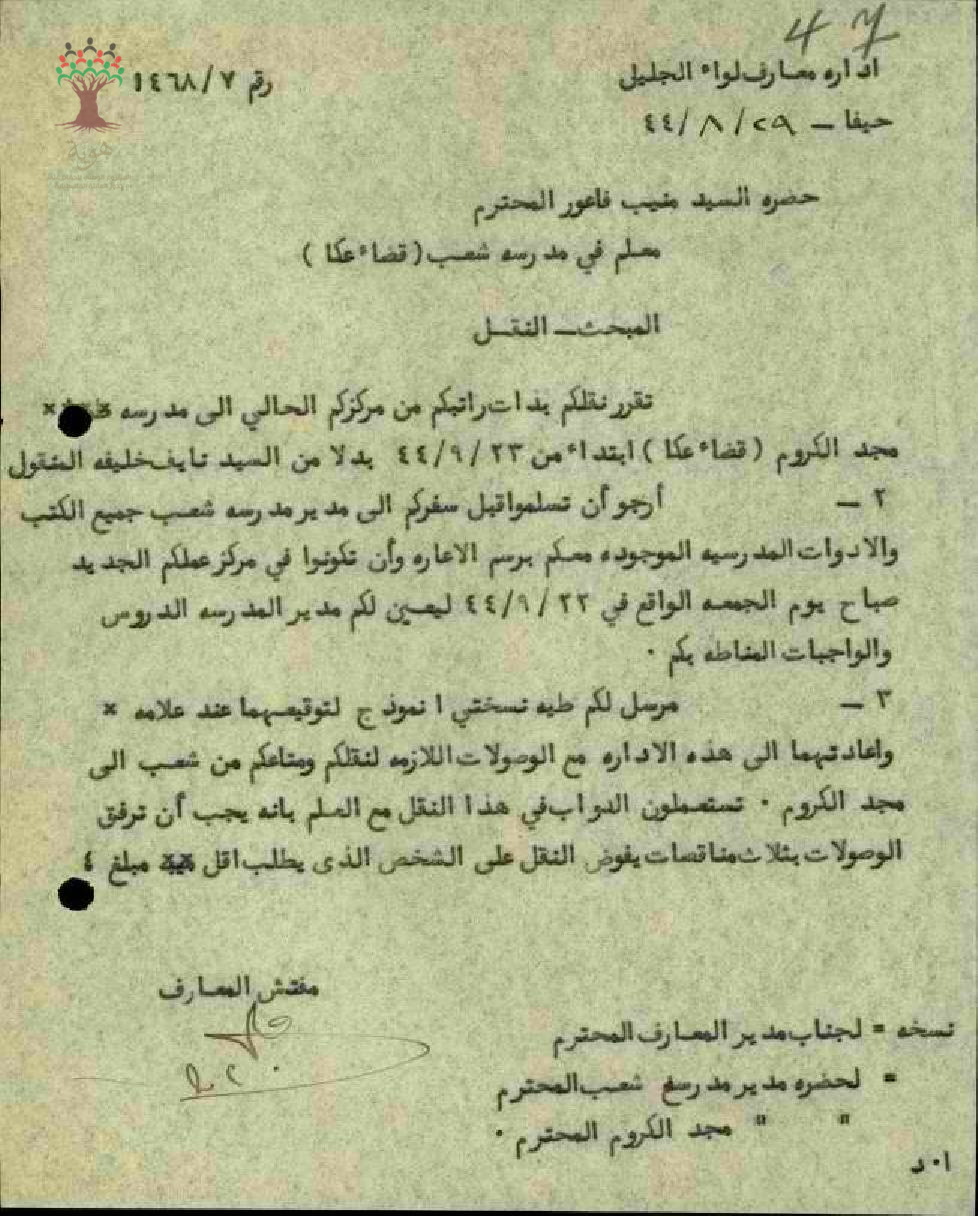 47
اداره معارف لواء الجليل
رقم ١٤٦٨/٧
حيفا — ٤٤/٨/٢٩
هوية
حضره السيد منيب فاعور المحترم
معلم في مدرسه شعب ( قضاء عكا )
المبحث — النقل
تقرر نقلكم بذات راتبكم من مركزكم الحالي الى مدرسه
مجد الكروم ( قضاء عكا ) ابتداء من ٤٤/٩/٢٣ بدلا من السيد نايف خليفه المنقول
٢ — أرجو أن تسلموا قبل سفركم الى مدير مدرسه شعب جميع الكتب
والادوات المدرسيه الموجوده معكم برسم الاعاره وأن تكونوا في مركز عملكم الجديد
صباح يوم الجمعه الواقع في ٤٤/٩/٢٢ ليعين لكم مدير المدرسه الدروس
والواجبات المناطه بكم ٠
٣ — مرسل لكم طيه نسختي انموذج لتوقيعهما عند علامه ×
واعادتهما الى هذه الاداره مع الوصولات اللازمه لنقلكم ومتاعكم من شعب الى
مجد الكروم ٠ تستعملون الدواب في هذا النقل مع العلم بانه يجب أن ترفق
الوصولات بثلاث مناقصات يفوض النقل على الشخص الذى يطلب اقل مبلغ ٤
مفتش المعارف
نسخه = لجناب مدير المعارف المحترم
= لحضره مدير مدرسة شعب المحترم
" " مجد الكروم المحترم ٠
ا٠د